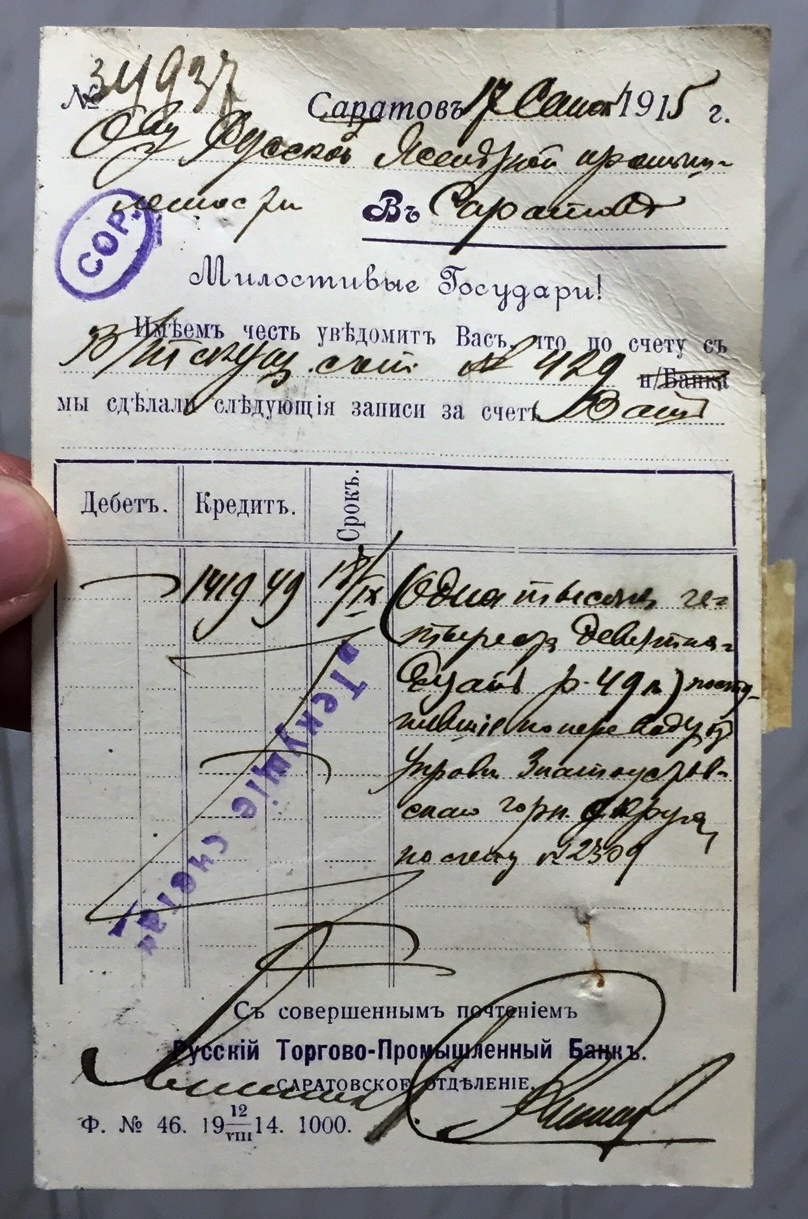 № 34937 Саратовъ 17 Сент 1915 г.
О-ву Русской промыш-
ленности Въ Саратовѣ
СОР.
Милостивые Государи!
Имѣемъ честь увѣдомитъ Васъ, что по счету съ
текущ. счет. № 429 п/Банка
мы сдѣлали слѣдующія записи за счетъ Вашъ
Дебетъ. Кредитъ. Срокъ.
1419 49 18/IX (Одна тысяча че-
тыреста девятна-
дцать р. 49 к) посту-
пившіе по переводу
Управл Златоустов-
скаго горн. округа,
по счету № 2309
„Текущіе счета"
Съ совершеннымъ почтеніемъ
Русскій Торгово-Промышленный Банкъ.
САРАТОВСКОЕ ОТДѢЛЕНІЕ.
Ф. № 46. 19 12/VIII 14. 1000.